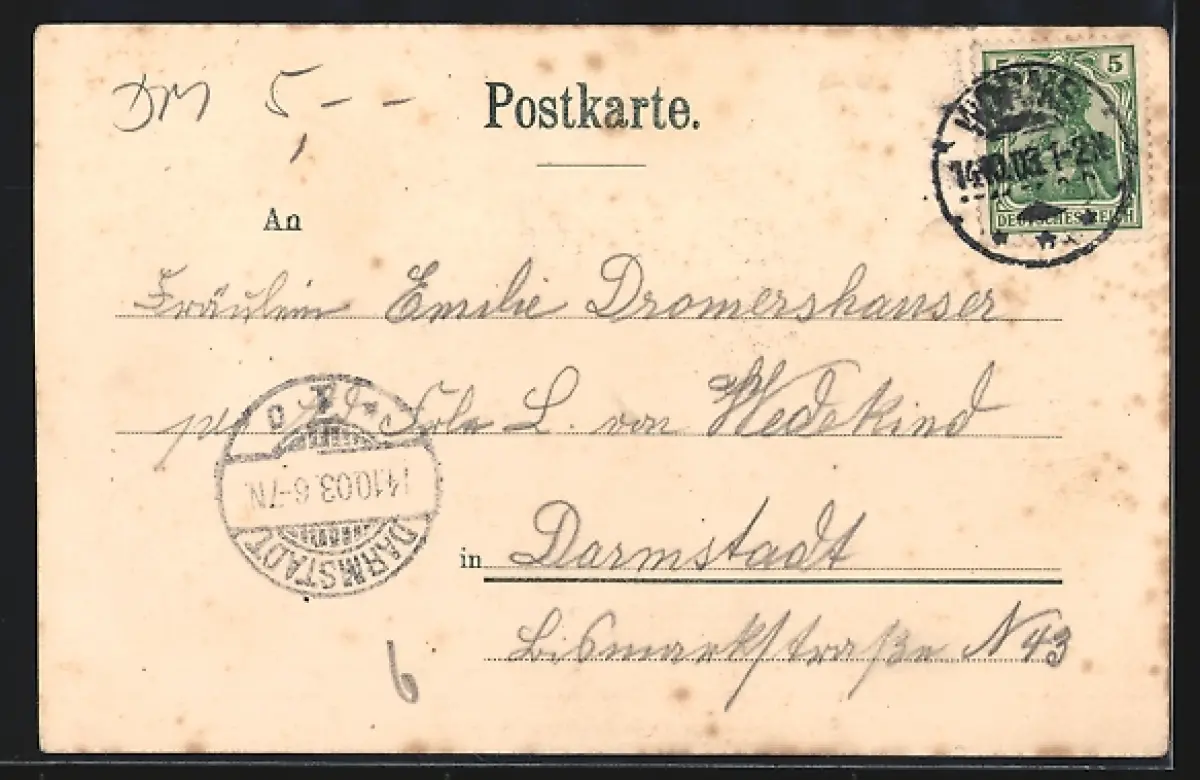 DM 5,--
Postkarte.
5 5
WORMS
14.10.03. 1-2N
DEUTSCHES REICH
An
Fräulein Emilie Dromershauser
Frln L. von Wedekind
14.10.03. 6-7N.
DARMSTADT
in Darmstadt
Bismarkstraße N 43
6